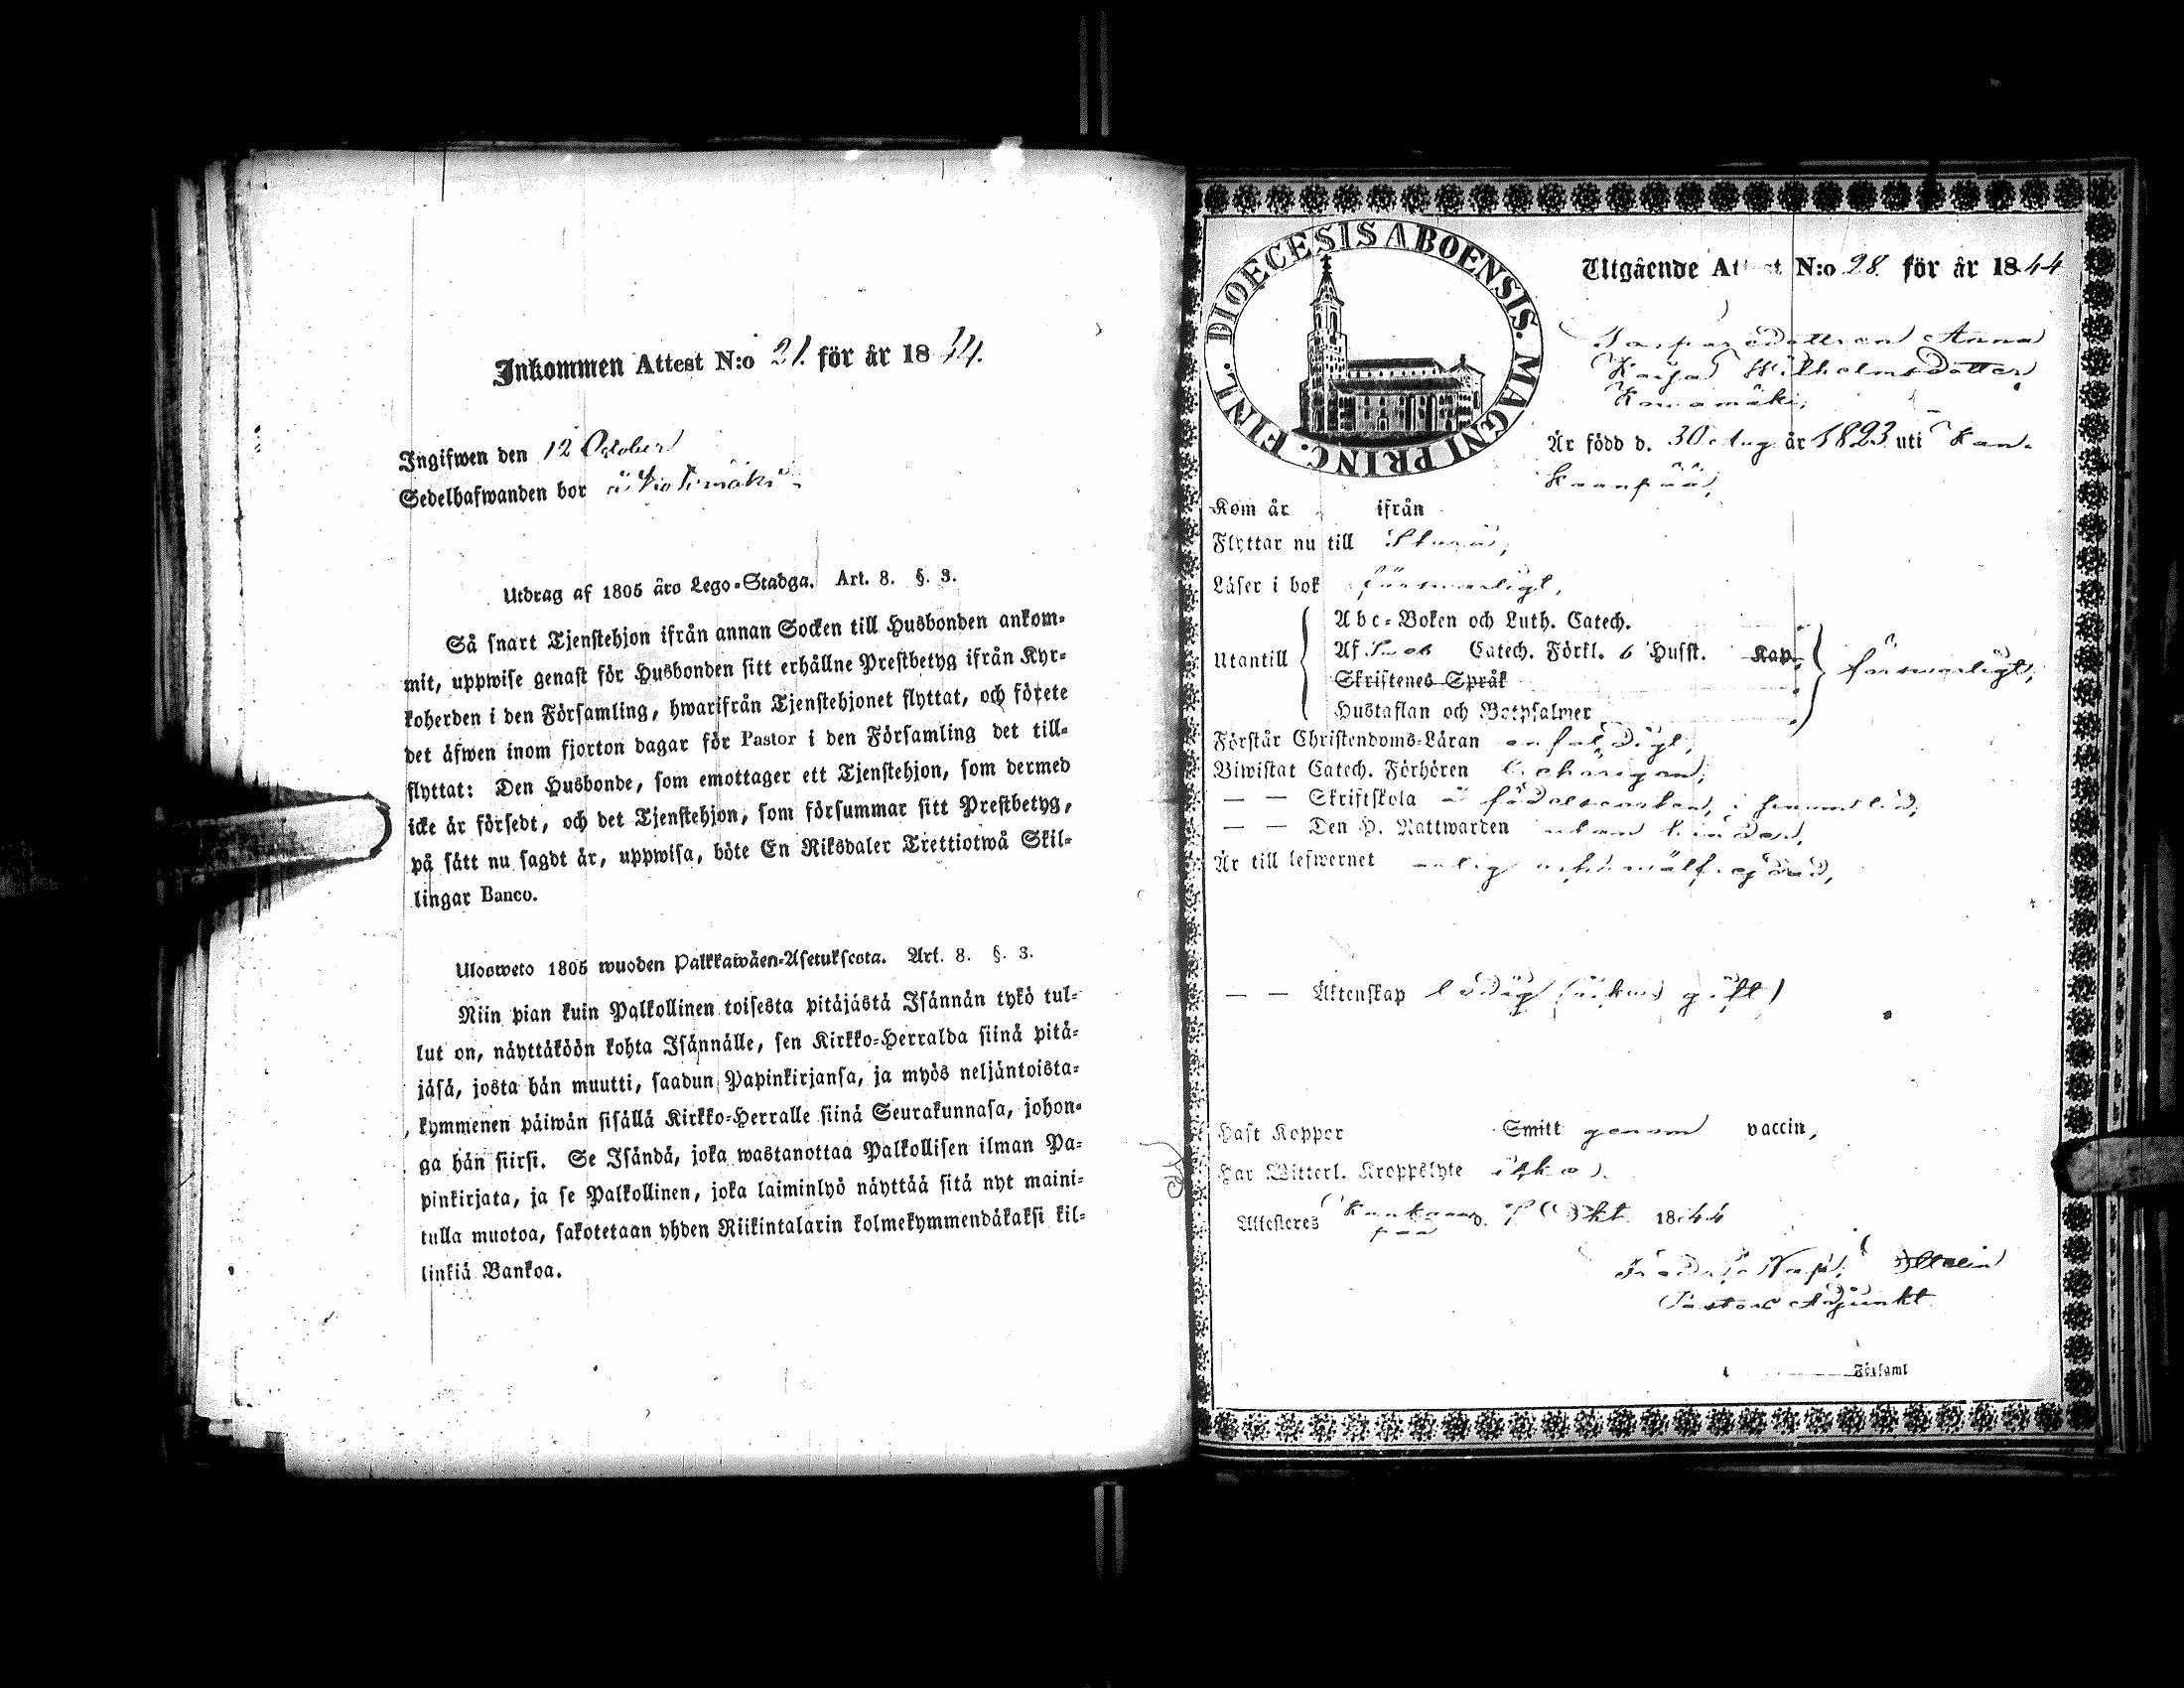 Inkommen Attest N:o 21. för år 1844.
Ingifwen den 12 October
Sedelhafwanden bor å
Utdrag af 1805 års Lego-Stadga. Art. 8. §. 3.
Så snart Tjenstehjon ifrån annan Socken till Husbonden ankom-
mit, uppwise genast för Husbonden sitt erhållne Prestbetyg ifrån Kyr-
koherden i den Församling, hwarifrån Tjenstehjonet flyttat, och förete
det äfwen inom fjorton dagar för Pastor i den Församling det till-
flyttat: Den Husbonde, som emottager ett Tjenstehjon, som dermed
icke är försedt, och det Tjenstehjon, som försummar sitt Prestbetyg,
på sätt nu sagdt är, uppwisa, böte En Riksdaler Trettiotwå Skil-
lingar Banco.
Ulosweto 1805 wuoden Palkkawäen-Asetuksesta. Art. 8. §. 3.
Niin pian kuin Palkollinen toisesta pitäjästä Isännän tykö tul-
lut on, näyttäköön kohta Isännälle, sen Kirkko-Herralda siinä pitä-
jäsä, josta hän muutti, saadun Papinkirjansa, ja myös neljäntoista-
kymmenen päiwän sisällä Kirkko-Herralle siinä Seurakunnasa, johon-
ga hän siirsi. Se Isändä, joka wastanottaa Palkollisen ilman Pa-
pinkirjata, ja se Palkollinen, joka laiminlyö näyttää sitä nyt maini-
tulla muotoa, sakotetaan yhden Riikintalarin kolmekymmendäkaksi kil-
linkiä Bankoa.
DIOECESIS ABOENSIS. MAGNI PRINC. FINL.
Utgående Attest N:o 28. för år 1844
Anna
Kajsa Wilhelmsdotter
Är född d. 30 Aug. år 1823 uti Kan-
kaanpää,
Kom år ifrån
Flyttar nu till
Läser i bok försvarligt,
Abc-Boken och Luth. Catech.
Utantill Af Catech. Förkl. 6 Husst. Kap. försvarligt,
Skriftenes Språk
Hustaflan och Botpsalmer
Förstår Christendoms-Läran enfaldigt,
Biwistat Catech. Förhören behörigen,
— — Skriftskola å
— — Den H. Nattwarden
Är till lefwernet
— — Äktenskap ledig
Haft Koppor Smitt genom vaccin,
Har Witterl. Kroppslyte
Attesteres Kankaan- d. Okt. 1844
pää
Pastors Adjunkt
i Församl